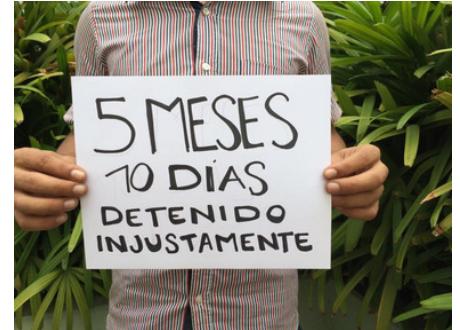 5 MESES
10 DÍAS
DETENIDO
INJUSTAMENTE